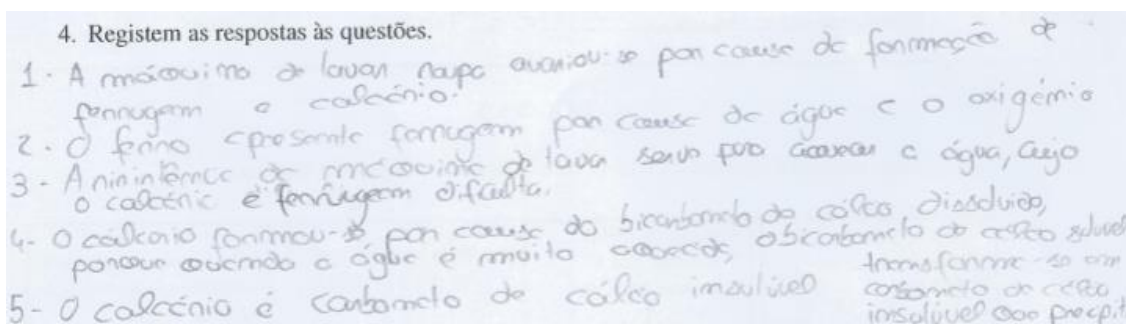 4. Registem as respostas às questões.
1. A máquina de lavar roupa avariou-se por causa da formação de
ferrugem e calcário.
2. O ferro apresenta ferrugem por causa da água e o oxigénio
3 - A de máquina de lava serve para aquecer a água, cujo
o calcário e ferrugem dificulta.
4- O calcário formou-se por causa do bicarbonato de cálcio dissolvido,
porque quando a água é muito aquecida, o bicarbonato de cálcio solúvel
transforma-se em
carbonato de cálcio
insolúvel que precipit
5- O calcário é carbonato de cálcio insolúvel